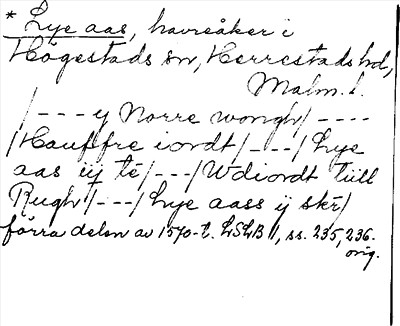 * Lye aas, havreåker i
Högestads sn, Herrestads hd,
Malm. l.
/- - - y Norre wongh/- - - -
/Hauffre iordt/- - -/Lye
aas iij té/- - -/Wdiordt tiill
Rugh/- - -/Lye aass ij skr/
förra delen av 1570-t. LSLB 1, ss. 235, 236.
orig.